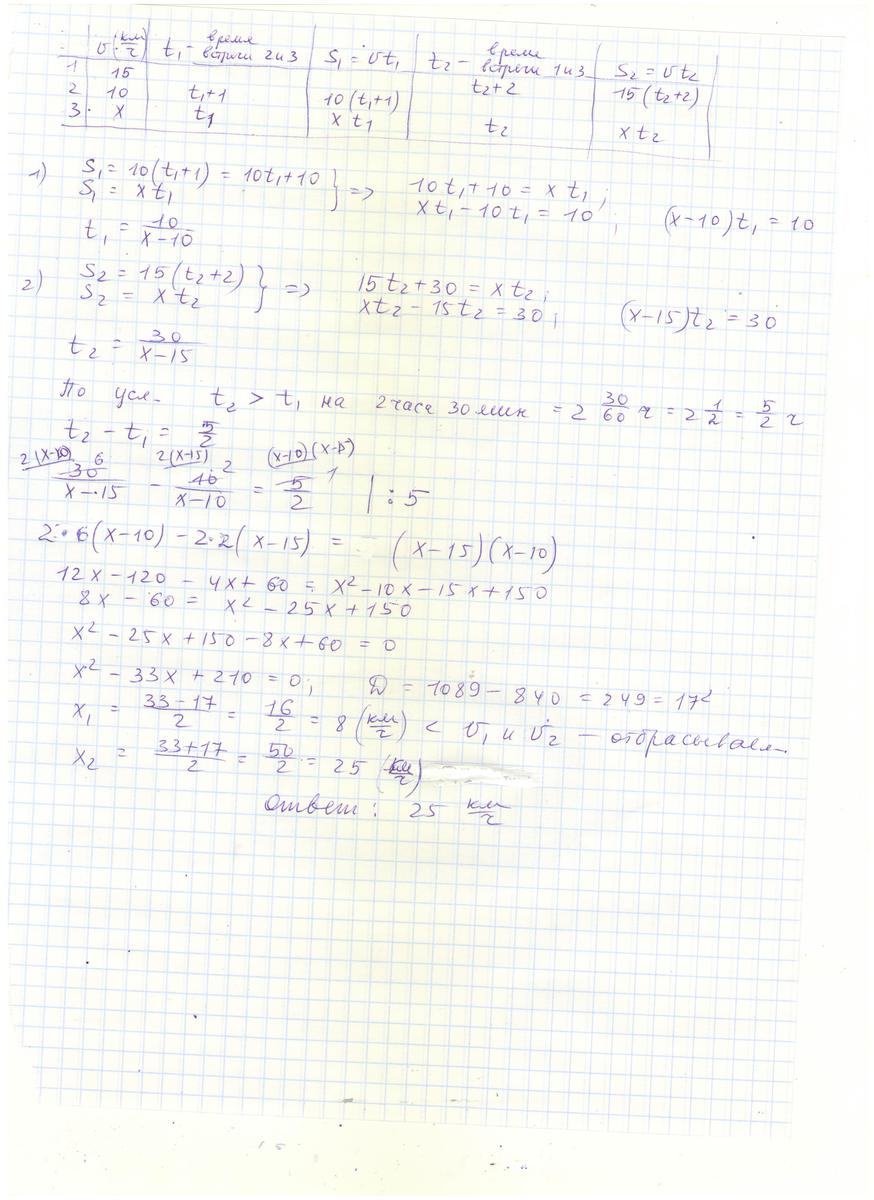 v (км/ч) t₁ - время встречи 2 и 3 S₁ = vt₁ t₂ - время встречи 1 и 3 S₂ = vt₂
1 15 t₂+2 15(t₂+2)
2 10 t₁+1 10(t₁+1)
3. x t₁ x t₁ t₂ x t₂
1) S₁ = 10(t₁+1) = 10t₁+10
S₁ = x t₁ } => 10t₁+10 = x t₁;
xt₁ - 10t₁ = 10; (x-10)t₁ = 10
t₁ = 10/(x-10)
2) S₂ = 15(t₂+2)
S₂ = x t₂ } => 15t₂+30 = x t₂;
xt₂ - 15t₂ = 30; (x-15)t₂ = 30
t₂ = 30/(x-15)
По усл. t₂ > t₁ на 2 часа 30 мин = 2 30/60 ч = 2 1/2 = 5/2 ч
t₂ - t₁ = 5/2
2(x-10) 6 2(x-15) 2 (x-10)(x-15) 1
30/(x-15) - 10/(x-10) = 5/2 | : 5
2·6(x-10) - 2·2(x-15) = (x-15)(x-10)
12x - 120 - 4x + 60 = x² - 10x - 15x + 150
8x - 60 = x² - 25x + 150
x² - 25x + 150 - 8x + 60 = 0
x² - 33x + 210 = 0; D = 1089 - 840 = 249 = 17²
x₁ = (33-17)/2 = 16/2 = 8 (км/ч) < v₁ и v₂ - отбрасываем.
x₂ = (33+17)/2 = 50/2 = 25 (км/ч)
Ответ: 25 км/ч